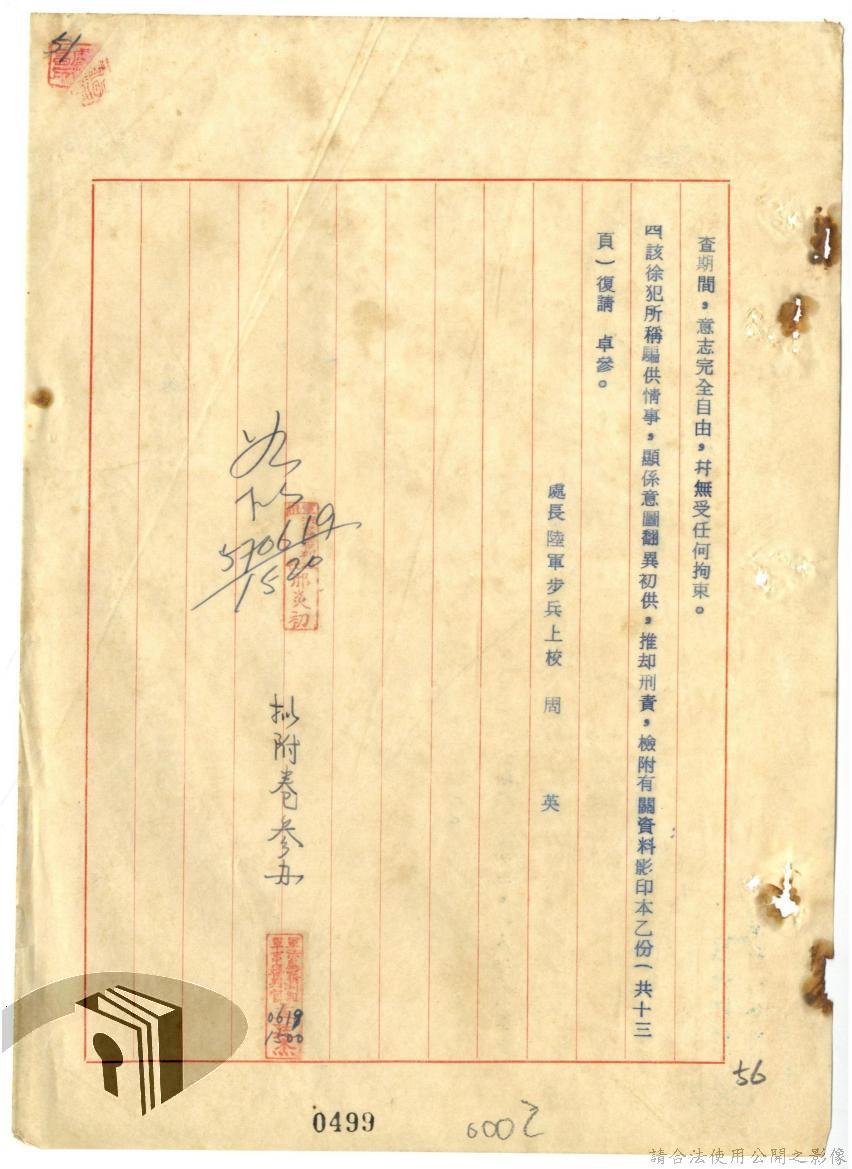 查期間，意志完全自由，幷無受任何拘束。
四該徐犯所稱騙供情事，顯係意圖翻異初供，推却刑責，檢附有關資料影印本乙份（共十三
頁）復請　卓參。
處長陸軍步兵上校　周　英
570619
1520
邢炎初
擬附卷參办
0619
1500
51
56
0499
600
請合法使用公開之影像